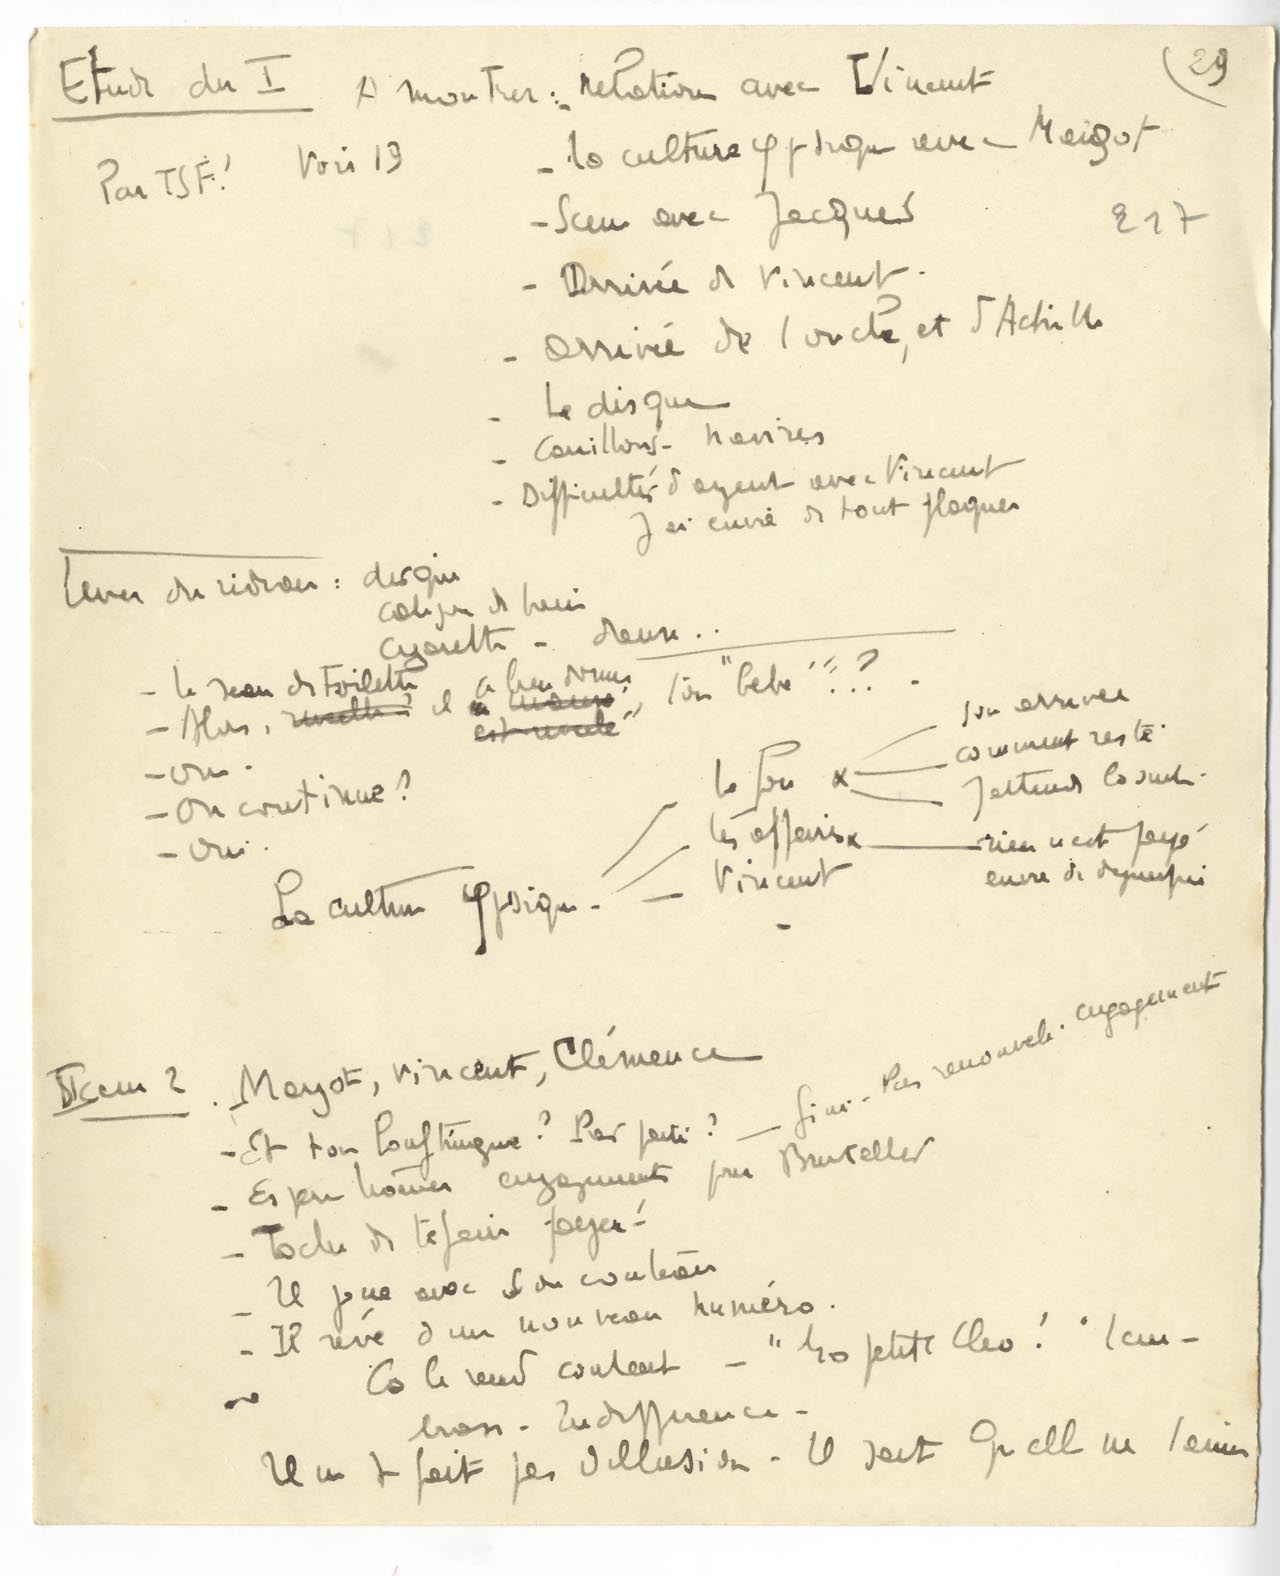 29
Etude du I A montrer : relation avec Vincent
Par TSF! Voir 19 - la culture physique avec Margot
- Scene avec Jacques
217
- Arrivée de Vincent.
- arrivée de l'oncle, et d'Achille
- Le disque
- Couillons - navires
- Difficultés d'argent avec Vincent
J'ai envie de tout plaquer
Lever du rideau : disque
cigarette - danse..
- le seau de toilette
- Alors, il a bien dormi, ton "bébé"!!? -
- oui.
- On continue?
- Oui.
La culture physique -
le fou x
son arrivée
comment resté.
J'attends la suite.
les affaires x
rien n'est payé
envie de déguerpir
Vincent
-
Scene 2. - Margot, Vincent, Clémence
- Et ton loufingue? Pas parti? - fini - Pas renouvelé. engagement
- Espere engagements pour Bruxelles
- Tache de te faire payer!
- Il joue avec son couteau
- Il rêve d'un nouveau numéro.
Ca le rend content - "Ma petite Cleo!" l'em-
brasse - Indifférence -
Il ne se fait pas d'illusion - Il sait qu'elle ne l'aime